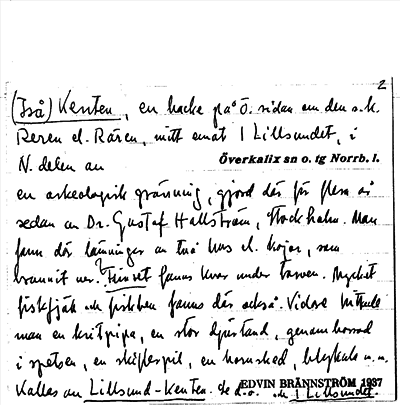 2
(Iså) Kenten, en backe på ö. sidan om den s.k.
Reren el. Råren, mitt emot 1 Lillsundet, i
N. delen av
Överkalix sn o. tg Norrb. l.
en arkeologisk grävning, gjord där för flera år
sedan av Dr. Gustaf Hallström, Stockholm. Man
fann där lämningar av två hus el. kojor, som
brunnit ner. Huset fanns kvar under torven. Mycket
fiskfjäll och fiskben fanns där också. Vidare hittade
man en kritpipa, en stor djurtand, genomborrad
i spetsen, en sköldespik, en hornsked, blykula m.m.
EDVIN BRÄNNSTRÖM 1937
Kallas av Lillsund-Kenten. Se d.o. och 1 Lillsundet.